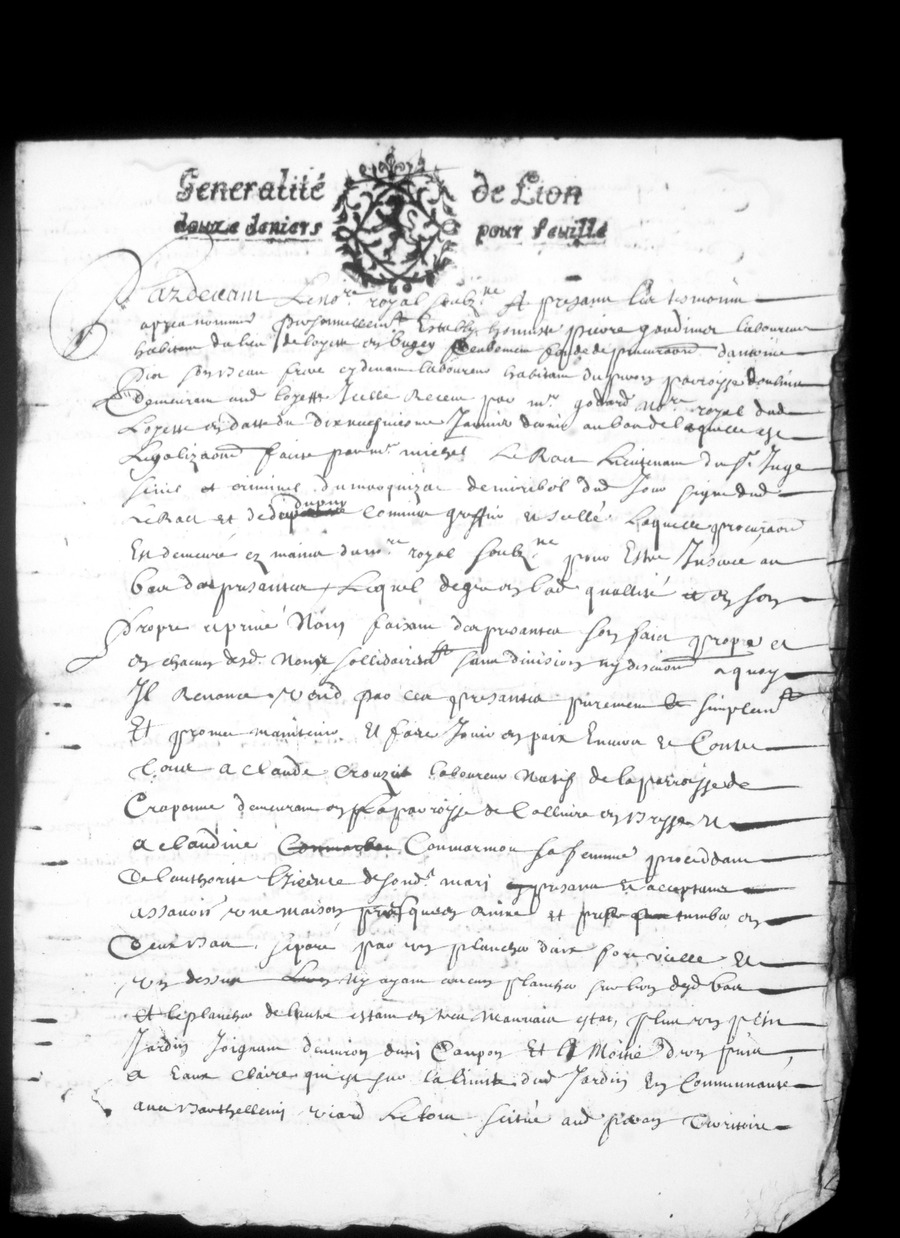 Generalité de Lion
douze deniers pour feuille
Pardevam Le no.re royal soubz.ne Et presans Les tesmoins
apres nommes personnellemt Estably honneste pierre gardimer laboureur
habitam du lieu de loyette en bugey Condomin fonde de procuraon d'antoine
son frere laboureur habitam du parroisse
demeuram aud loyette Icelle Receue par m.e godard No.re royal dud
Loyette en datte du dix neufviesme Janvier dernier au bas de laquelle est
Legalizaon faite par m.e michel Le Rat Lieutenam du s.r Juge
sivil et criminel du marquizat de miribel dud Jour signe dud
Le Rat et de dupuy Comme greffier et sellé Laquelle procuraon
Est demeuré ez mains du no.re royal soubz.ne pour Estre Inseree au
bas des presantes, Lequel de gre en lad quallité et en son
propre et privé Nom faisam des presantes son faict propre et
en chacun desd. Noms sollidairemt sans division ny discution a quoy
Il Renonce vend par ces presantes purement & simplemt
Et promet maintenir Et faire Jouir en paix Envers et Contre
tous a claude crouzit laboureur Natif de la parroisse de
Craponne demeuram en la parroisse de en et
a claudine Conmarmon sa femme proceddam
de l'authorite licence de sond.t mari presans et acceptans
assavoir une maison presque en ruine et tumbee en
deux bas, separé par un plancher dure fort vielle et
un dessus ny ayam aucun plancher sur l'un desd bas
Et le plancher de l'autre estam en tres Mauvais estat, plus un petit
Jardin Joignam d'environ demi Coupon Et la Moitié d'un puis
a Eaux claire qui est sur la limite dud Jardin En Communauté
avec Barthellemi viard Le tout scitué aud territoire